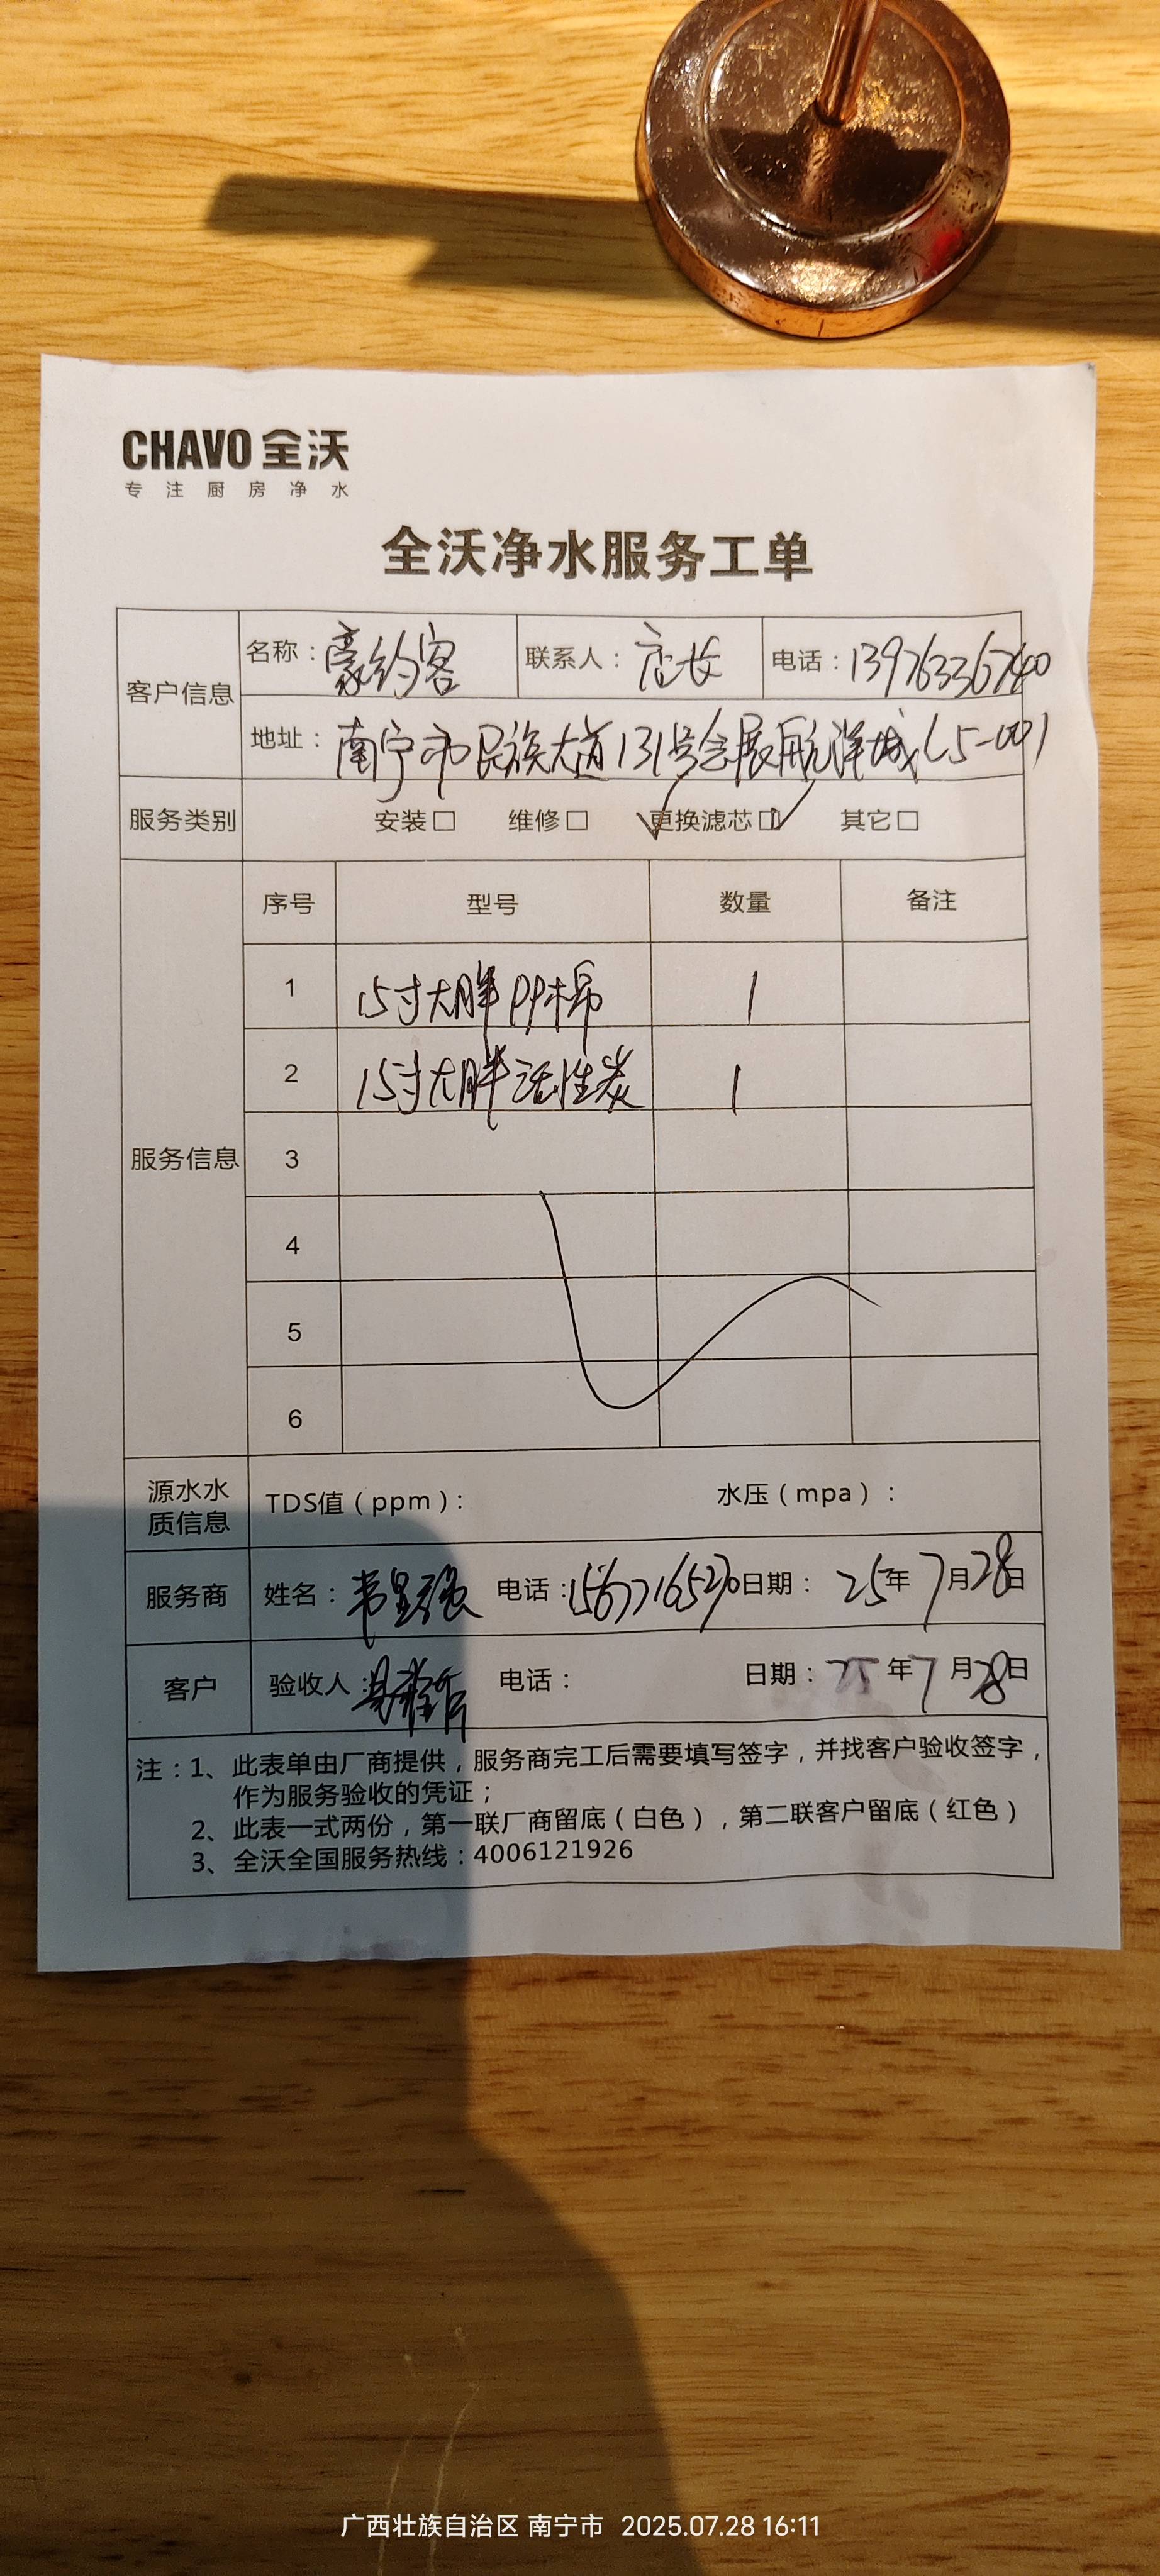 CHAVO 全沃
专注厨房净水
全沃净水服务工单
客户信息 名称：豪约客 联系人：店长 电话：13976336740
地址：南宁市民族大道131号会展航洋城L5-001
服务类别 安装□ 维修□ 更换滤芯☑ 其它□
服务信息 序号 型号 数量 备注
1 15寸大胖PP棉 1
2 15寸大胖活性炭 1
3
4
5
6
源水水质信息 TDS值（ppm）： 水压（mpa）：
服务商 姓名： 电话：15677165270 日期：25年7月28日
客户 验收人： 电话： 日期：25年7月28日
注：1、此表单由厂商提供，服务商完工后需要填写签字，并找客户验收签字，
作为服务验收的凭证；
2、此表一式两份，第一联厂商留底（白色），第二联客户留底（红色）
3、全沃全国服务热线：4006121926
广西壮族自治区 南宁市 2025.07.28 16:11